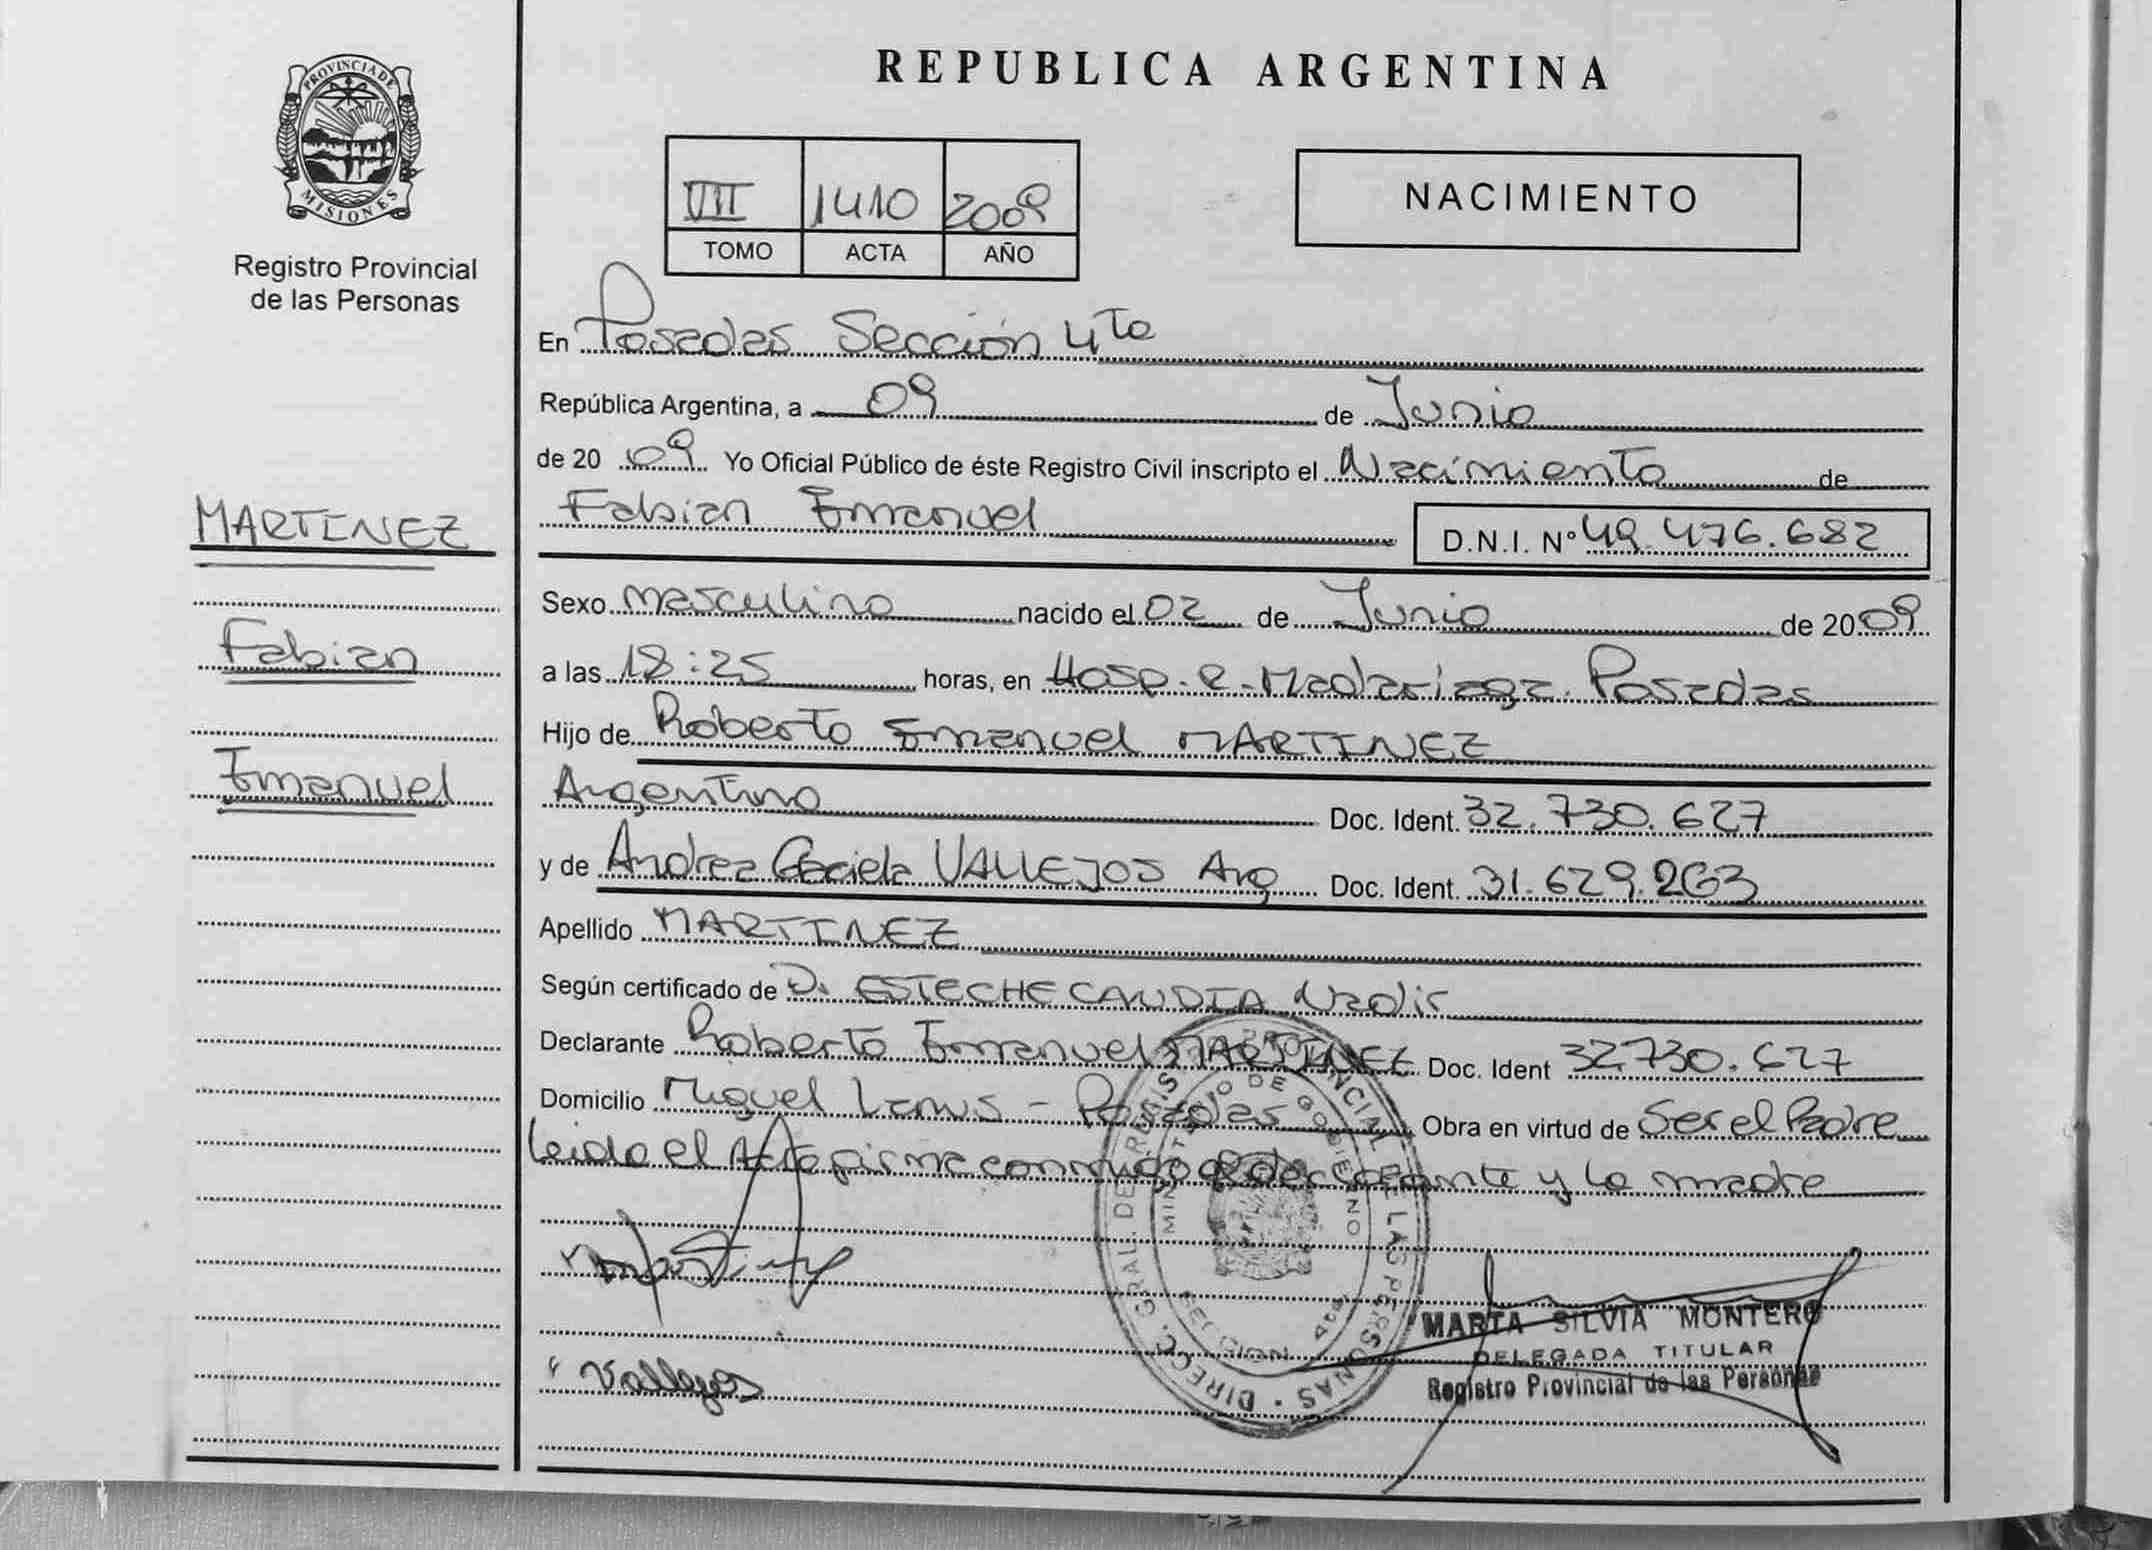 PROVINCIA DE
MISIONES
Registro Provincial
de las Personas
MARTINEZ
Fabian
Emanuel
REPUBLICA ARGENTINA
VII 1410 2009
TOMO ACTA AÑO
NACIMIENTO
En Posadas Sección 4ta
República Argentina, a 09 de Junio
de 20 09 Yo Oficial Público de éste Registro Civil inscripto el Nacimiento de
Fabian Emanuel D.N.I. Nº 49.476.682
Sexo masculino nacido el 02 de Junio de 2009
a las 18:25 horas, en Hosp. R. Madariaga. Posadas
Hijo de Roberto Emanuel MARTINEZ
Argentino Doc. Ident. 32.730.627
y de Andrea Graciela VALLEJOS Arg Doc. Ident. 31.629.263
Apellido MARTINEZ
Según certificado de D. ESTECHE CAUDIA Nadir
Declarante Roberto Emanuel MARTINEZ Doc. Ident 32730.627
Domicilio Miguel Lanus - Posadas Obra en virtud de Ser el Padre
Leida el Acta firma conmigo el declarante y la madre
DIRECC. GRAL. DE REGIS PROVINCIAL DE LAS PERSONAS
MINISTERIO DE GOBIERNO
Martinez
Vallejos
MARTA SILVIA MONTERO
DELEGADA TITULAR
Registro Provincial de las Personas